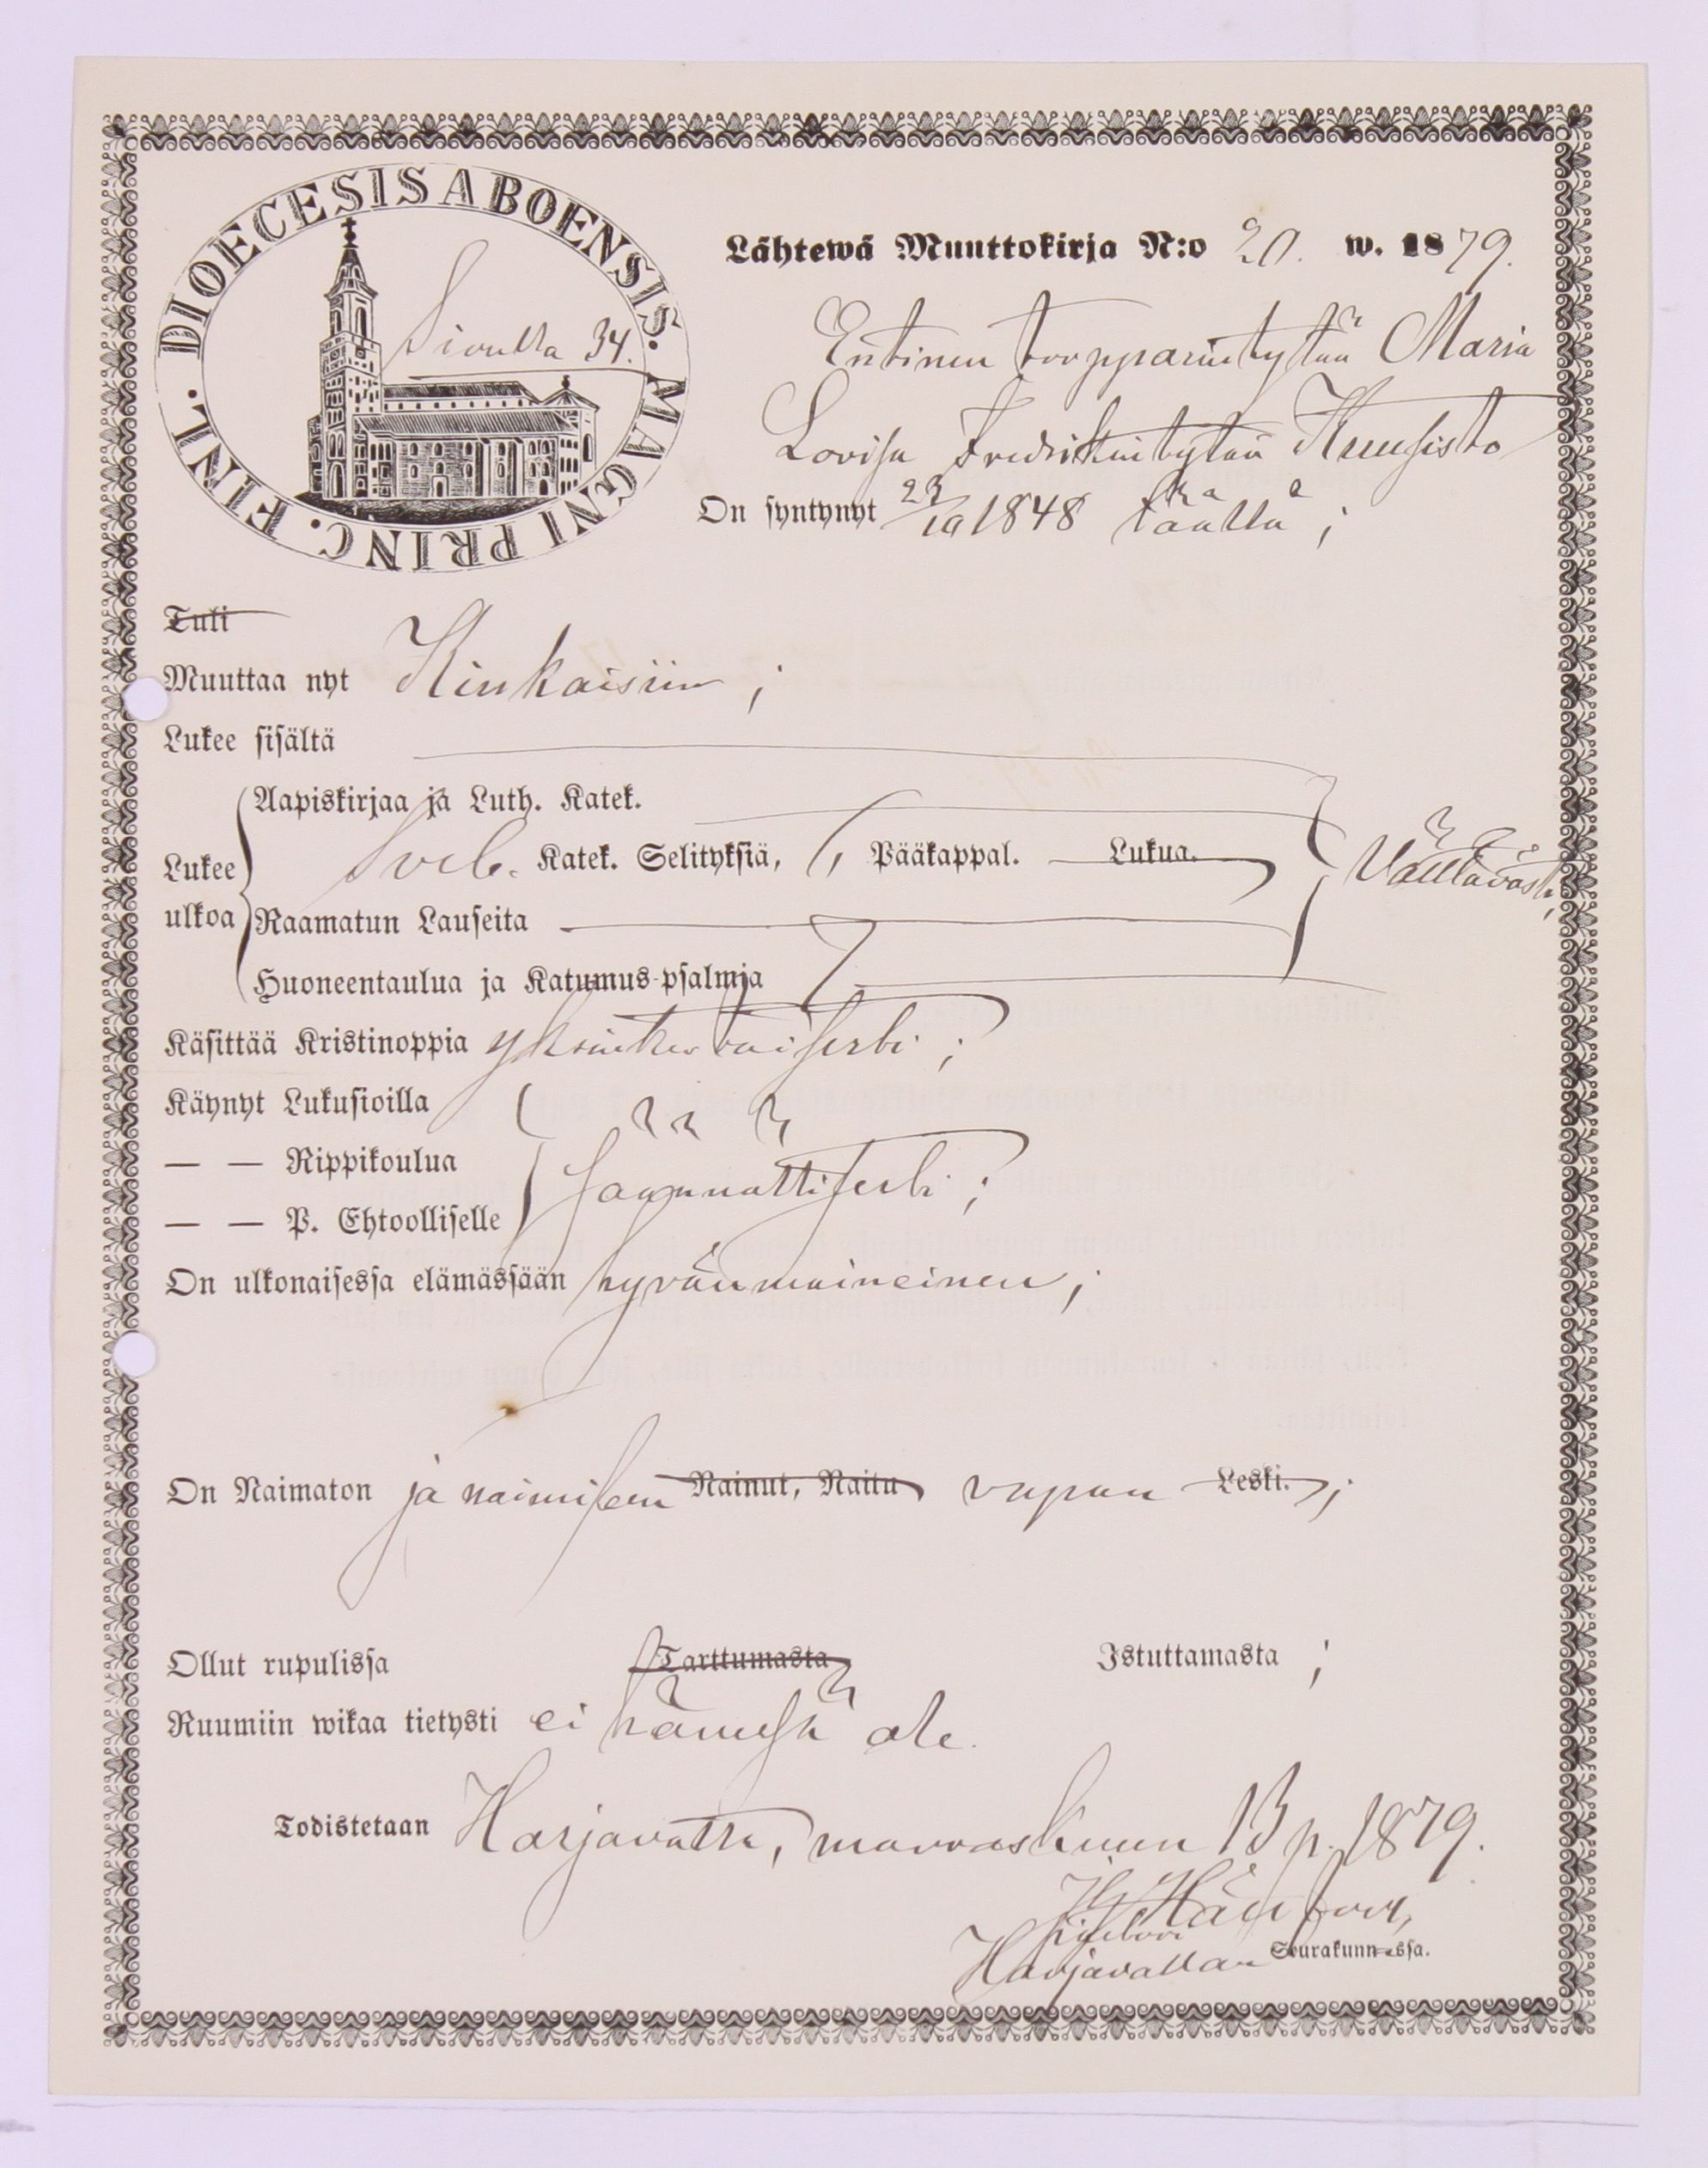 DIOECESIS ABOENSIS. MAGNI PRINC. FINL.
Sivulla 34.
Lähtewä Muuttokirja N:o 20. w. 1879.
Entinen torpparintytär Maria
Lovisa Fredrikintytär Kuusisto
On syntynyt 23/10 1848 täällä;
Tuli
Muuttaa nyt Kiukaisiin;
Lukee sisältä
Aapiskirjaa ja Luth. Katek.
Lukee ulkoa
Sveb. Katek. Selityksiä, Pääkappal. Lukua. Välttävästi,
Raamatun Lauseita
Huoneentaulua ja Katumus-psalmja
Käsittää Kristinoppia yksinkertaisesti;
Käynyt Lukusioilla
— — Rippikoulua säännöllisesti;
— — P. Ehtoolliselle
On ulkonaisessa elämässään hyvänmaineinen;
On Naimaton ja naimiseen Nainut, Naitu vapaa Leski.;
Ollut rupulissa Tarttumasta Istuttamasta;
Ruumiin wikaa tietysti ei hänessä ole.
Todistetaan Harjavalta, marraskuun 13 p. 1879.
Harjavallan Seurakunnassa.